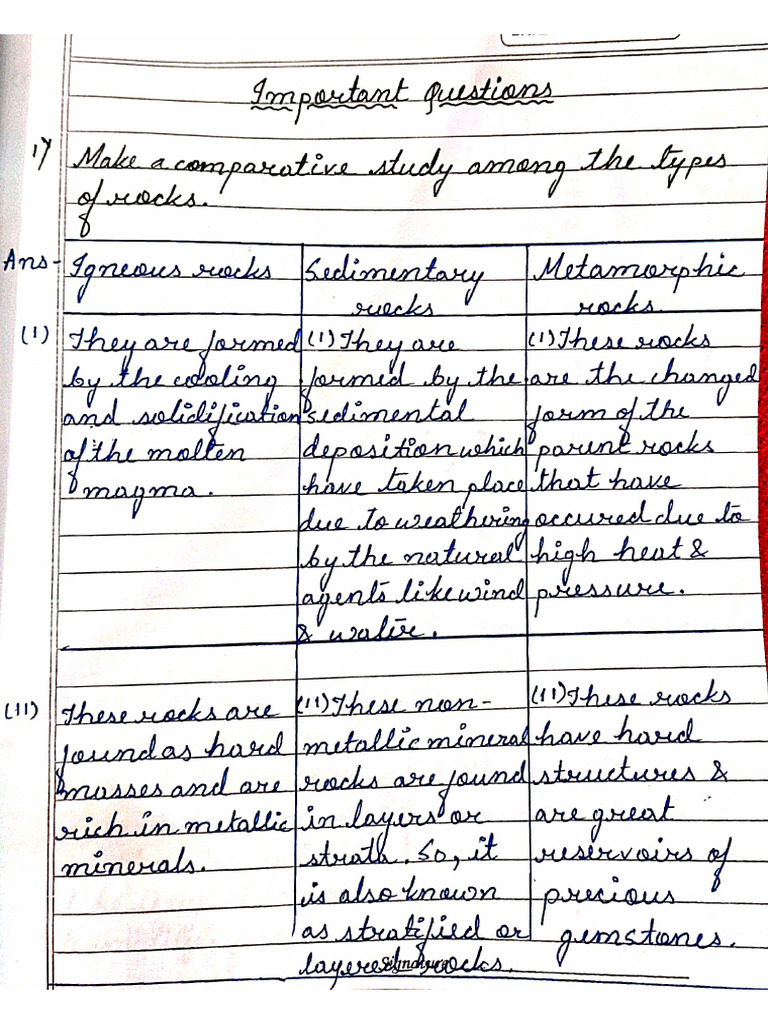 Important Questions
1) Make a comparative study among the types
of rocks.
Ans- Igneous rocks
Sedimentary
rocks
Metamorphic
rocks.
(I) They are formed
by the cooling
and solidification
of the molten
magma.
(I) They are
formed by the
sedimental
deposition which
have taken place
due to weathering
by the natural
agents like wind
& water.
(I) These rocks
are the changed
form of the
parent rocks
that have
occured due to
high heat &
pressure.
(II) These rocks are
found as hard
masses and are
rich in metallic
minerals.
(II) These non-
metallic mineral
rocks are found
in layers or
strata. So, it
is also known
as stratified or
layered rocks.
(II) These rocks
have hard
structures &
are great
reservoirs of
precious
gemstones.